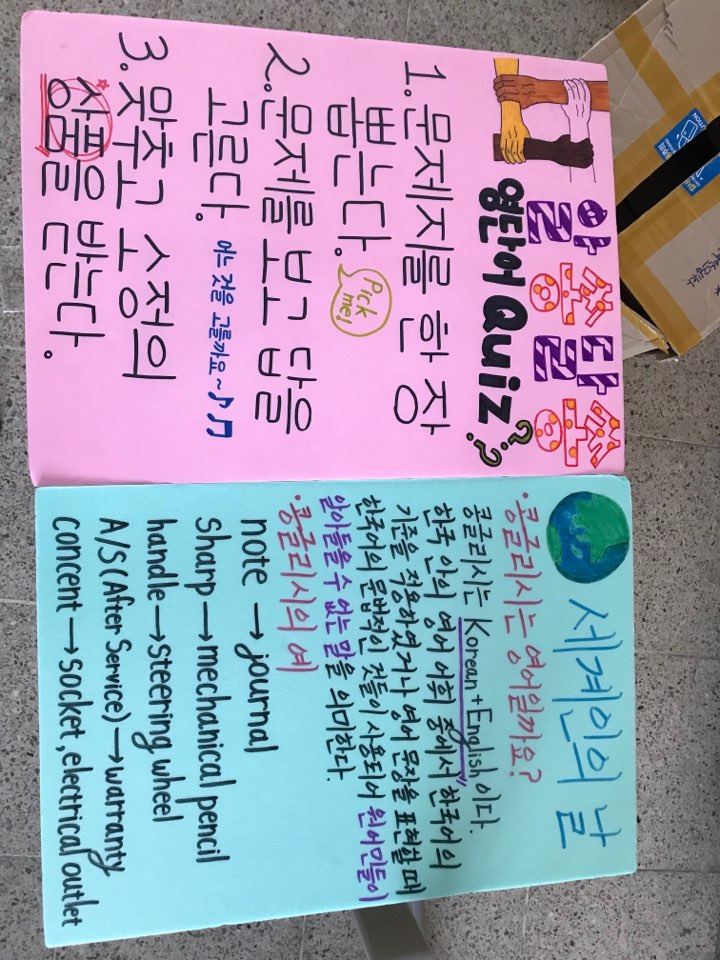 알쏭달쏭
영단어 Quiz??
1. 문제지를 한 장
뽑는다.
Pick me!
2. 문제를 보고 답을
고른다.
어느 것을 고를까요~♪♫
3. 맞추고 소정의
상품을 받는다.
세계인의 날
·콩글리시는 영어일까요?
콩글리시는 "Korean+English"이다.
한국 안의 영어 어휘 중에서 한국어의
기준을 적용하였거나 영어 문장을 표현할 때
한국어의 문법적인 것들이 사용되어 원어민들이
알아들을 수 없는 말을 의미한다.
·콩글리시의 예
note → journal
sharp → mechanical pencil
handle → steering wheel
A/S(After Service) → warranty
concent → socket, electrical outlet